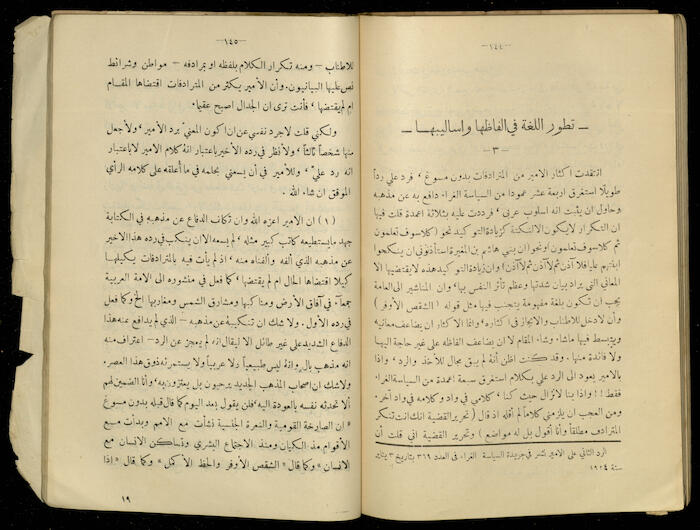 —١٤٤—
— تطور اللغة في الفاظها واساليبها —
— ٣ —
انتقدت اكثار الامير من المترادفات بدون مسوغ ، فرد علي رداً
طويلاً استغرق اربعة عشر عمودا من السياسة الغراء دافع به عن مذهبه
وحاول ان يثبت انه اسلوب عربي ، فرددت عليه بثلاثة اعمدة قلت فيها
ان التكرار لايكون الا لنكتة كزيادة التوكيد نحو ( كلا سوف تعلمون
ثم كلا سوف تعلمون ) ونحو ( ان بني هاشم بن المغيرة استأذنوني ان ينكحوا
ابنتهم عليا فلا آذن ثم لا آذن ثم لا آذن ) وان زيادة التوكيد هذه لايقتضيها الا
المعاني التي يراد بيان شدتها وعظم تأثر النفس بها ، وان المناشير الى العامة
يجب ان تكون بلغة مفهومة يتجنب فيها مثل قوله ( الشقص الأوفر )
وأن لا دخل للاطناب والايجاز في اكثاره ، وانما الاكثار ان يضاعف معانيه
ويتبسط فيها ماشاء وشاء المقام لا ان يضاعف الفاظه على غير حاجة اليها
ولا فائدة منها . وقد كنت اظن أنه لم يبق مجال للأخذ والرد ، واذا
بالامير يعود الى الرد علي بكلام استغرق سبعة اعمدة من السياسة الغراء
فقط ! ! واذا بنا لانزال حيث كنا ، كلامي في واد وكلامه في واد آخر .
ومن العجب ان يلزمني كلاماً لم أقله اذ قال ( تحرير القضية انك انت تنكر
المترادف مطلقاً وأنا أقول بل له مواضع ) وتحرير القضية اني قلت أن
الرد الثاني على الامير نشر في جريدة السياسة الغراء في العدد ٣٦٩ بتاريخ ٣ يناير
سنة ١٩٢٤
—١٤٥—
للاطناب — ومنه تكرار الكلام بلفظه او بمرادفه — مواطن وشرائط
نص عليها البيانيون. وأن الأمير يكثر من المترادفات اقتضاها المقام
ام لم يقتضها ، فأنت ترى ان الجدال اصبح عقيما.
ولكني قلت لاجرد نفسي عن ان اكون المعنيّ برد الأمير ، ولأجعل
منها شخصاً ثالثاً ، ولأنظر في رده الأخير باعتبار انهُ كلام الامير لا باعتبار
انه رد عليّ ، وللأمير في أن يسعني بحلمه في ما أعلقه على كلامه الرأي
الموفق ان شاء الله .
( ١ ) ان الامير اعزه الله وان تكلف الدفاع عن مذهبه في الكتابة
جهد ما يستطيعه كاتب كبير مثله ، لم يسعه الا ان يتنكب في رده هذا الاخير
عن مذهبه الذي ألفه وألفناه منه ، اذ لم يأت فيه بالمترادفات يكيلها
كيلا اقتضاها الحال ام لم يقتضها ، كما فعل في منشوره الى الامة العربية
جمعآء في آفاق الأرض ومناكبها ومشارق الشمس ومغاربها الخ وكما فعل
في رده الأول . ولا شك ان تنكبهُ عن مذهبه — الذي لم يدافع عنه هذا
الدفاع الشديد على غير طائل الا ليقال انه لم يعجز عن الرد — اعتراف منه
انه مذهب بال وانهُ ليس طبيعياً ولا عربياً ولا يستمرئه ذوق هذا العصر.
ولا شك ان اصحاب المذهب الجديد يرحبون بل يعتزون به ، وأنا الضمين لهم
ألا تحدثه نفسه بالعودة اليه ، فلن يقول بعد اليوم كما قال قبله بدون مسوغ
« ان الصارخة القومية والنعرة الجنسية نشأت مع الامم وبدأت مع
الأقوام مذ الكيان ومنذ الاجتماع البشري وتساكن الانسان مع
الانسان » وكما قال « الشقص الأوفر والحظ الأكمل » وكما قال « اذا
١٩